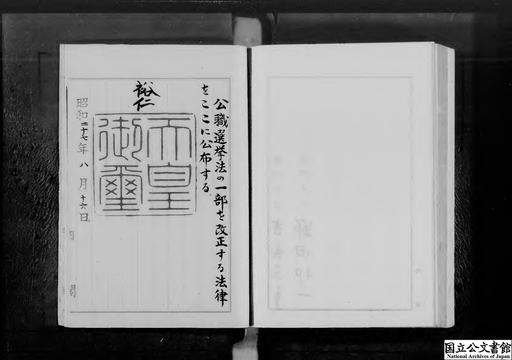 公職選挙法の一部を改正する法律
をここに公布する
裕仁
天皇
御璽
昭和二十七年八月十六日
国立公文書館
National Archives of Japan